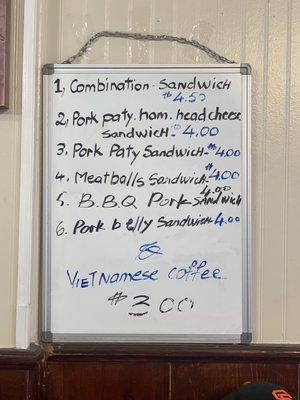 1, Combination - Sandwich
$4.50
2, Pork paty. ham. head cheese
sandwich - 4.00
3. Pork Paty Sandwich - $4.00
4. Meatballs Sandwich - $4.00
5. B.B.Q Pork Sandwich 4.00
6. Pork belly Sandwich - 4.00
Vietnamese Coffee
$3.00